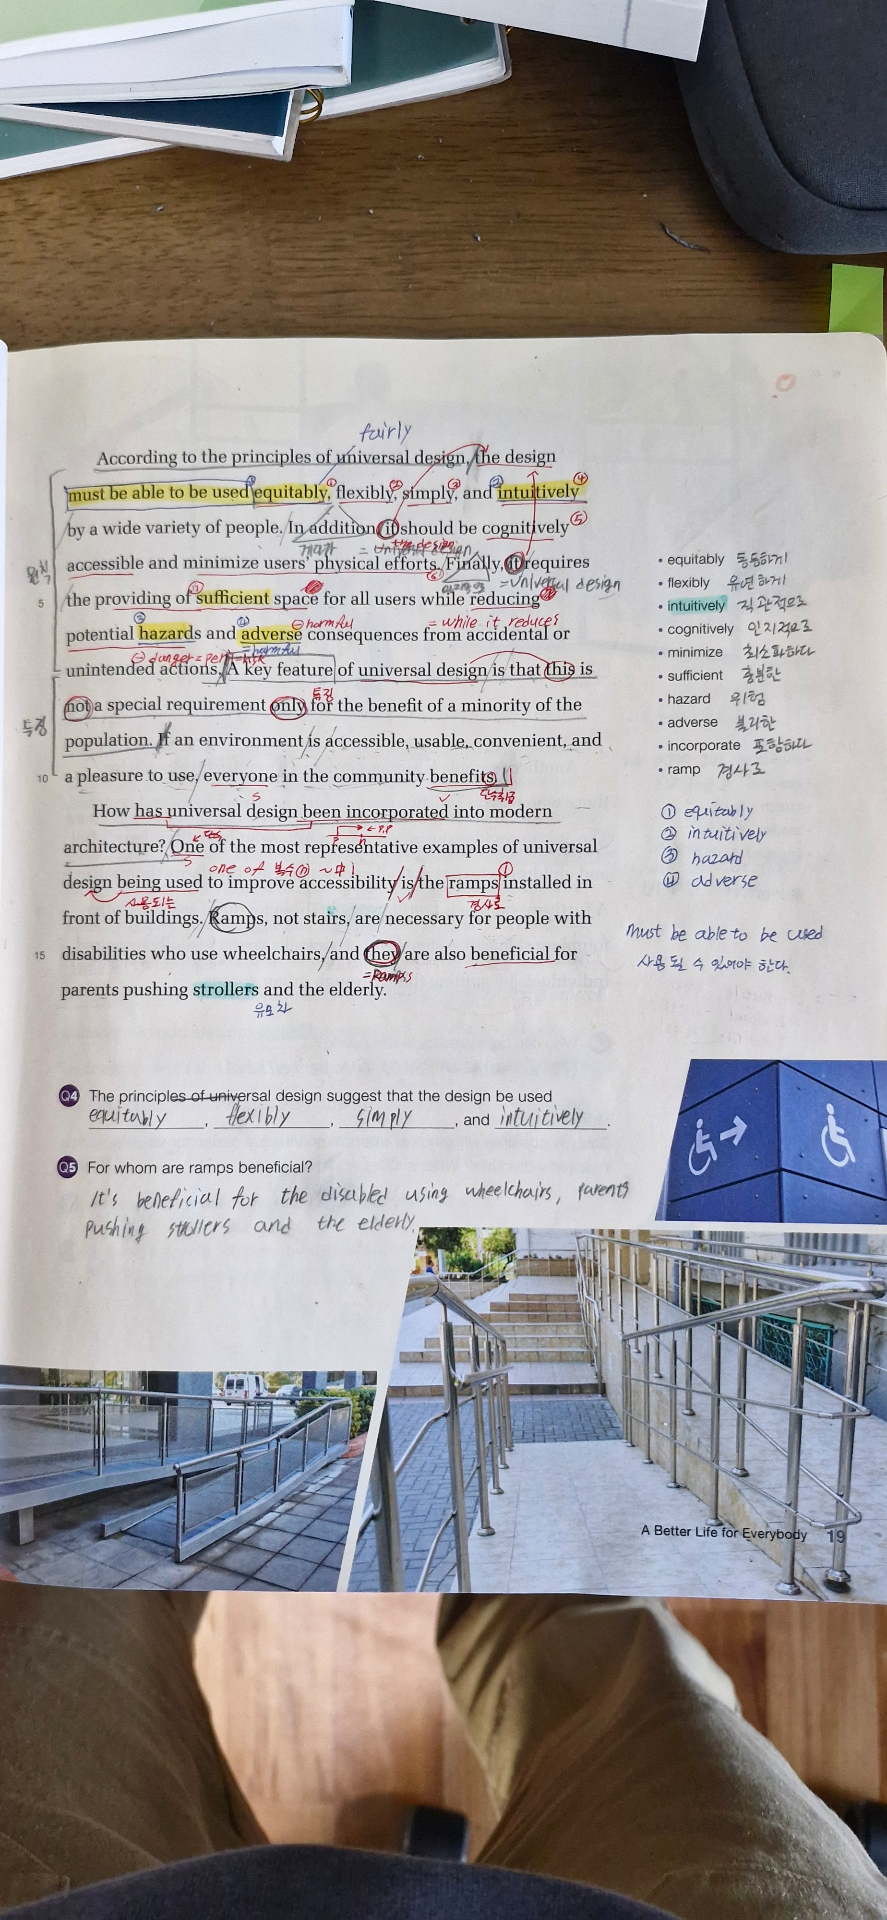 fairly
According to the principles of universal design, the design
must be able to be used equitably, flexibly, simply, and intuitively
① ② ③ ④
by a wide variety of people. In addition, it should be cognitively ⑤
게다가 = universal design the design
accessible and minimize users' physical efforts. Finally, it requires
원칙 ⑥ 마지막으로 = universal design
5 the providing of sufficient space for all users while reducing
⊖harmful = while it reduces
potential hazards and adverse consequences from accidental or
⊖ danger = peril = risk = harmful
unintended actions. A key feature of universal design is that this is
특징
not a special requirement only for the benefit of a minority of the
특징
population. If an environment is accessible, usable, convenient, and
10 a pleasure to use, everyone in the community benefits.
S V 단수취급
How has universal design been incorporated into modern
architecture? One of the most representative examples of universal
S one of 복수ⓝ ~中 1
design being used to improve accessibility is the ramps installed in
사용되는 경사로
front of buildings. Ramps, not stairs, are necessary for people with
15 disabilities who use wheelchairs, and they are also beneficial for
=Ramps
parents pushing strollers and the elderly.
유모차
• equitably 동등하게
• flexibly 유연하게
• intuitively 직관적으로
• cognitively 인지적으로
• minimize 최소화하다
• sufficient 충분한
• hazard 위험
• adverse 불리한
• incorporate 포함하다
• ramp 경사로
① equitably
② intuitively
③ hazard
④ adverse
must be able to be used
사용 될 수 있어야 한다.
Q4 The principles of universal design suggest that the design be used
equitably, flexibly, simply, and intuitively.
Q5 For whom are ramps beneficial?
It's beneficial for the disabled using wheelchairs, parents
pushing strollers and the elderly.
A Better Life for Everybody 19